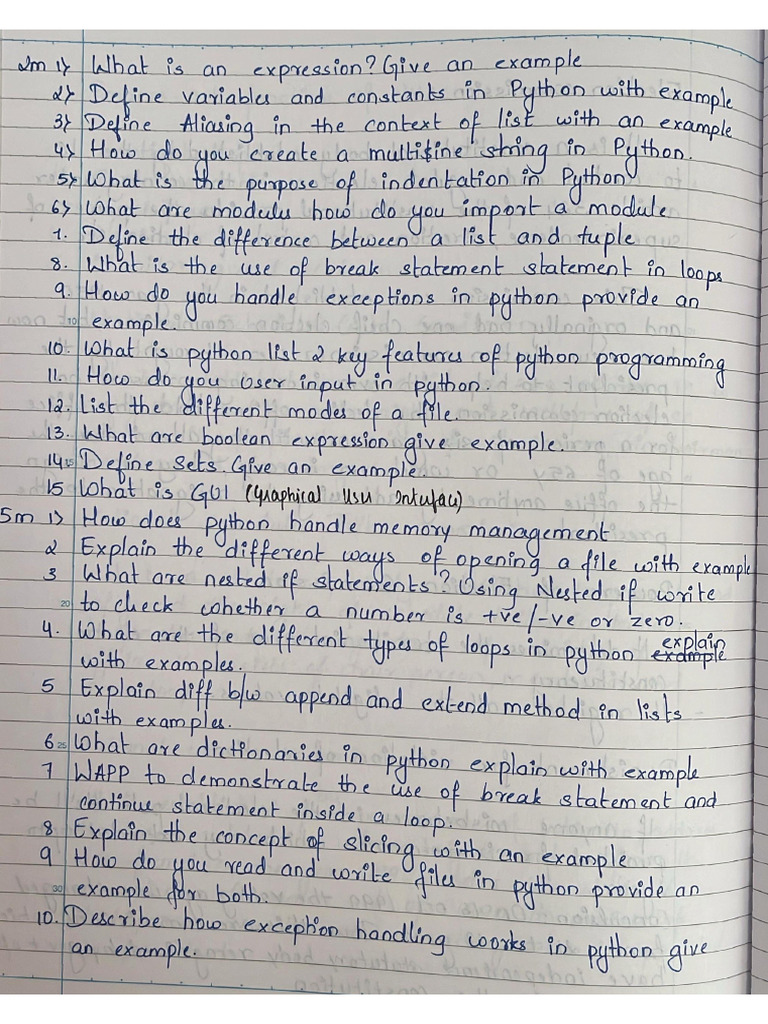 2m 1) What is an expression? Give an example
2) Define variables and constants in Python with example
3) Define Aliasing in the context of list with an example
4) How do you create a multiline string in Python.
5) What is the purpose of indentation in Python
6) What are moduls how do you import a module
7. Define the difference between a list and tuple
8. What is the use of break statement statement in loops
9. How do you handle exceptions in python provide an
10 example.
10. What is python list 2 key features of python programming
11. How do you user input in python.
12. List the different modes of a file.
13. What are boolean expression give example.
14. 15 Define Sets. Give an example.
15 What is GUI (Graphical Usu Intufac)
5m 1) How does python handle memory management
2 Explain the different ways of opening a file with example
3 What are nested if statements? Using Nested if write
20 to check whether a number is +ve/-ve or zero.
4. What are the different types of loops in python explain example
with examples.
5 Explain diff b/w append and extend method in lists
with examples.
6 25 What are dictionaries in python explain with example
7 WAPP to demonstrate the use of break statement and
continue statement inside a loop.
8 Explain the concept of slicing with an example
9 How do you read and write files in python provide an
30 example for both.
10. Describe how exception handling works in python give
an example.